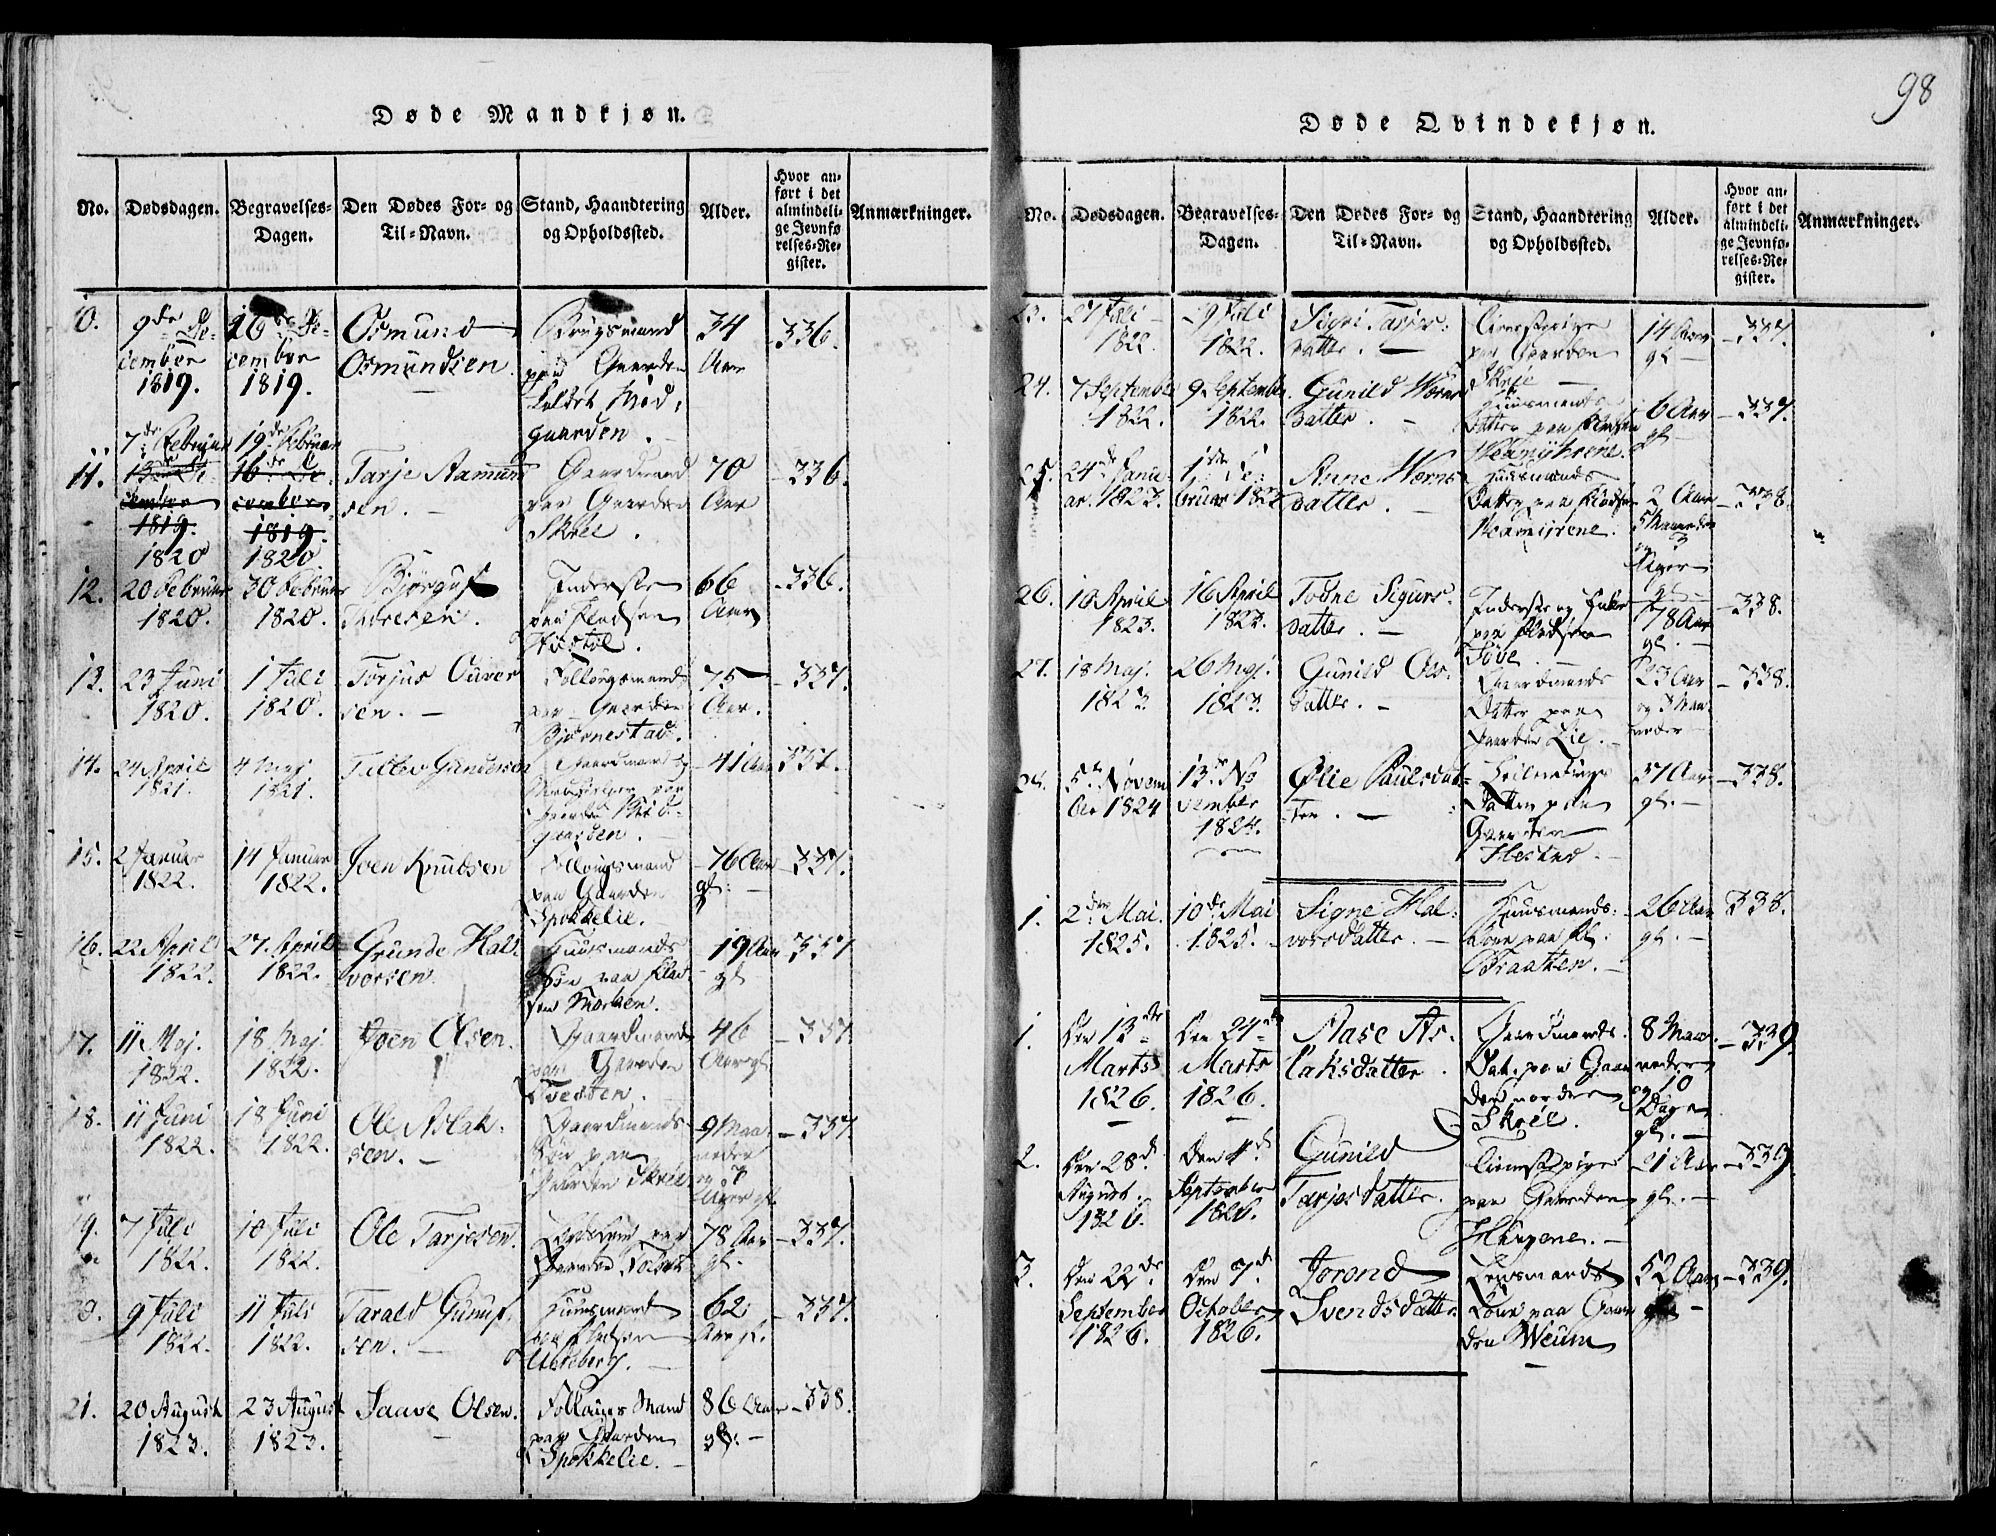 98
Døde Mandkjøn.
No.
Dødsdagen.
Begravelses-
Dagen.
Den Dødes For- og
Til-Navn.
Stand, Haandtering
og Opholdssted.
Alder.
Hvor an-
ført i det
almindeli-
ge Jevnfø
relses-Re-
gister.
Anmærkninger.
10.
9de De-
cember
1819.
16de De-
cember
1819.
Osmund
Osmundsen.
Brugsmand
paa Gaarden
Gaarden.
34
Aar
336.
7de Februar
19de Februar
11.
cember
1819.
1820
16de De-
cember
1819.
1820.
Tarje Aamund
sen.
Gaardmand
paa Gaarden
Skree.
70
Aar
-336.
12.
20 Februar
1820.
30 Februar
1820.
Bjørguf
Thoresen.
Inderste
paa Pladsen
66
Aar
-336.
13.
23 Juni
1820.
1 Juli
1820.
Torjus
sen.
paa Gaarden
Bjørnestad.
75
Aar.
-337.
14.
24 April
1821.
4 Maj
1821.
Tellev Gunderson
Gaardmand og
gaarden.
41 Aar
337.
15.
2 Januar
1822.
14 Januar
1822.
Joen Knudsen
paa Gaarden
Spokkelie.
-76 Aar
gl:
-337.
16.
22 April
1822.
27. April
1822.
Grunde Hal-
vorsen.
Huusmands
Søn paa Plad-
sen Moehen.
19 Aar
gl
-337
17.
11 Maj.
1822.
18 Maj
1822.
Joen Olsen.
Gaardmand
paa Gaarden
Tvedten.
46
Aar gl.
-337
18.
11 Juni
1822.
18 Juni
1822.
Ole Aslak-
sen.
Gaardmands
Søn paa
Gaarden Skree
9 Maa-
neder
-337
19.
7 Juli
1822.
10 Juli
1822.
Ole Tarjesen.
Gaarden
78 Aar
gl.
-337.
20.
9 Juli
1822.
11 Juli
1822.
Tarald Gunuf-
sen.
Huusmand
paa Pladsen
62
Aar gl.
-337.
21.
20 August
1823.
23 August
1823.
Saave Olsen.
Follaugs Mand
paa Gaarden
Spokkelie.
86 Aar
gl:
-338.
Døde Qvindekjøn.
No.
Dødsdagen.
Begravelses-
Dagen.
Den Dødes For- og
Til-Navn.
Stand, Haandtering
og Opholdssted.
Alder.
Hvor an-
ført i det
almindeli-
ge Jevnfø-
relses-Re-
gister.
Anmærkninger.
23.
27 Juli
1822.
29 Juli
1822.
Sigri Tarjes-
datter.
Tienestepige
paa Gaarden
Skree
14 Aar
gl
-337.
24.
7 September
1822.
9 September
1822.
Gunild Werns
datter.
Huusmands
Datter paa Pladsen
6 Aar
gl
-337.
25.
24de Janu-
ar. 1823.
1ste Fe-
bruar 1823
Anne Werns
datter.
Huusmands
Datter paa Pladsen
2 Aar
5 Maaneder
og 3
Uger
gl.
-338.
26.
10 April
1823.
16 April
1823.
Todne Sigurs-
datter.
Inderste og Enke
paa Pladsen
78 Aar
gl.
-338.
27.
18 Maj.
1823
26 Maj.
1823.
Gunild Ols-
datter.
Gaardmands
Datter paa
Gaarden Lie.
23 Aar
og 3 Maa-
neder
-338.
28.
5te Novem
ber 1824
13de No
vember
1824.
Ølie Paulsdat-
ter.
Datter paa
Gaarden
37 Aar
gl.
-338.
1.
2den Mai.
1825.
10de Mai
1825.
Signe Hal-
vorsdatter.
Huusmands-
Kone paa Pl.
Braatten.
-26 Aar
gl.
338.
1.
Den 13de
Marts
1826.
Den 24de
Marts
1826.
Aase As-
laksdatter.
Gaardmands
Dat. paa Gaar
den nordre
Skree.
8 Maa-
neder
og 10
Dage
gl.
-339.
2.
Den 28de
August.
1826.
Den 4de
September
1826.
Gunild
Tarjesdatter.
Tienestepige
paa Gaarden
-21 Aar
gl.
-339
3.
Den 22de
September
1826.
Den 7de
October
1826.
Jorond
Svendsdatter
Lensmands
Kone paa Gaar
den Weum
52 Aar
gl.
-339.